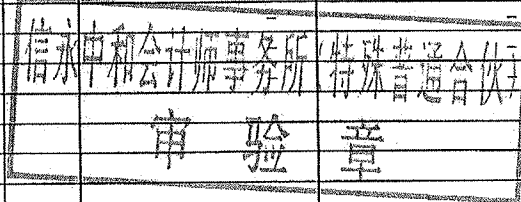 信永中和会计师事务所（特殊普通合伙）
审验章